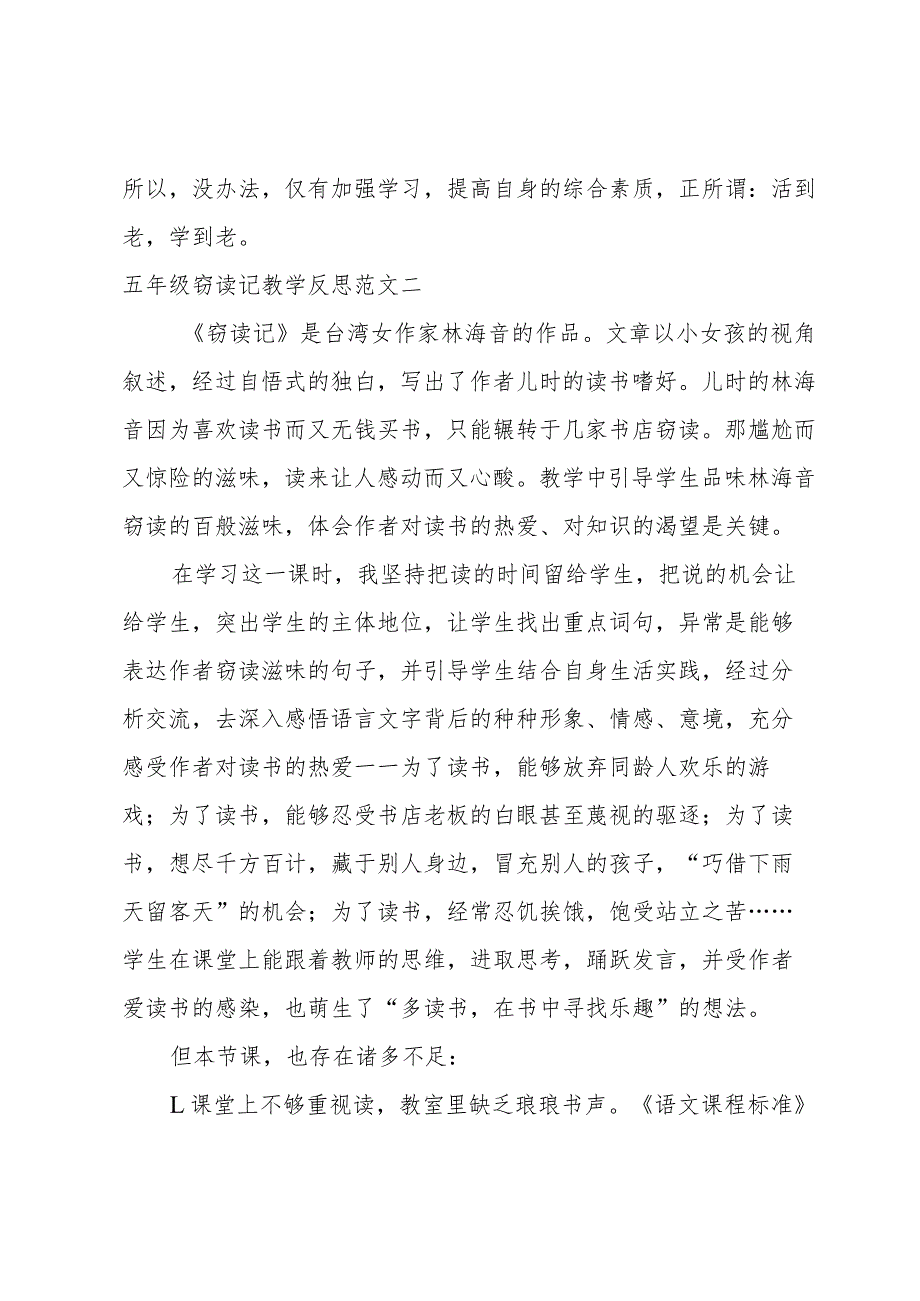 所以，没办法，仅有加强学习，提高自身的综合素质，正所谓：活到
老，学到老。
五年级窃读记教学反思范文二
《窃读记》是台湾女作家林海音的作品。文章以小女孩的视角
叙述，经过自悟式的独白，写出了作者儿时的读书嗜好。儿时的林海
音因为喜欢读书而又无钱买书，只能辗转于几家书店窃读。那尴尬而
又惊险的滋味，读来让人感动而又心酸。教学中引导学生品味林海音
窃读的百般滋味，体会作者对读书的热爱、对知识的渴望是关键。
在学习这一课时，我坚持把读的时间留给学生，把说的机会让
给学生，突出学生的主体地位，让学生找出重点词句，异常是能够
表达作者窃读滋味的句子，并引导学生结合自身生活实践，经过分
析交流，去深入感悟语言文字背后的种种形象、情感、意境，充分
感受作者对读书的热爱一一为了读书，能够放弃同龄人欢乐的游
戏；为了读书，能够忍受书店老板的白眼甚至蔑视的驱逐；为了读
书，想尽千方百计，藏于别人身边，冒充别人的孩子，“巧借下雨
天留客天”的机会；为了读书，经常忍饥挨饿，饱受站立之苦……
学生在课堂上能跟着教师的思维，进取思考，踊跃发言，并受作者
爱读书的感染，也萌生了“多读书，在书中寻找乐趣”的想法。
但本节课，也存在诸多不足：
L 课堂上不够重视读，教室里缺乏琅琅书声。《语文课程标准》